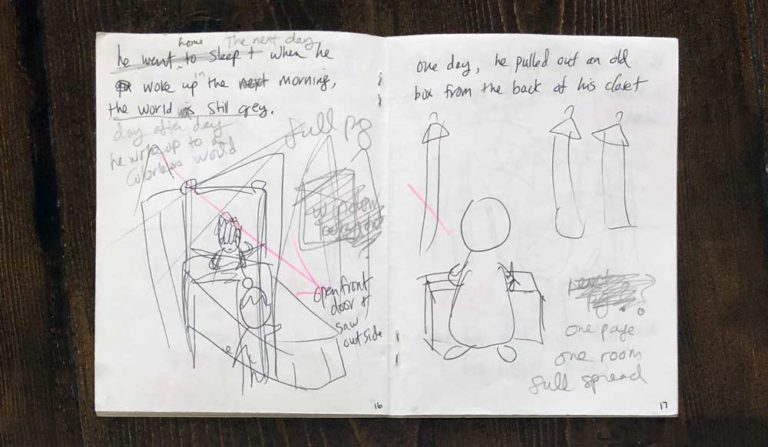 home The next day
he went to sleep + when he
woke up in the next morning,
the world is still grey.
day after day
he woke up to a
colorless world
full pg
open front
door +
saw
outside
16
one day, he pulled out an old
box from the back of his closet
one page
one room
full spread
17